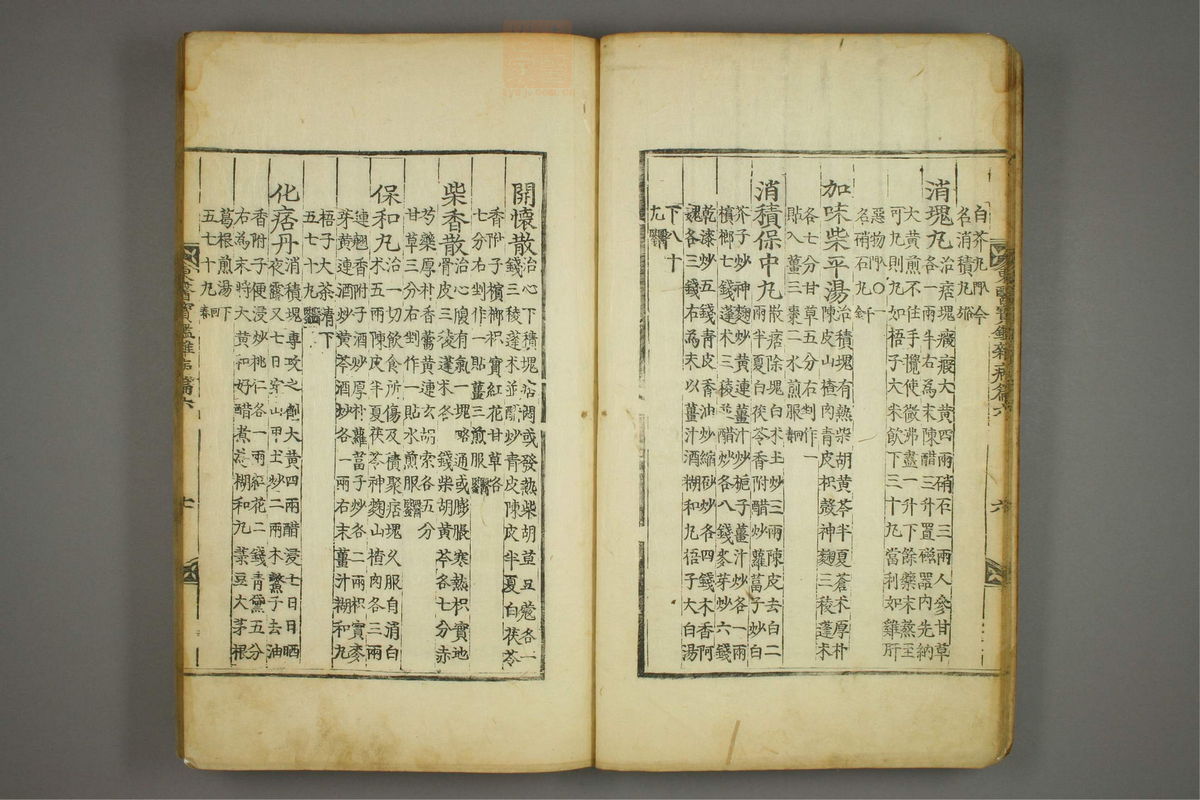 白芥丸【門】今
名消積丸【瑯】
消塊丸治痞塊癥瘕大黃四兩硝石三兩人參甘草
各一兩半右爲末陳醋三升置磁器內先納
大黃煎不住手攪使微沸盡一升下餘藥末蒸至
可丸則丸如梧子大米飮下三十丸當利如雞肝
惡物【門】○一
名硝石丸【千金】
加味柴平湯治積塊有熱柴胡黃芩半夏蒼朮厚朴
陳皮山楂肉靑皮枳殼神麴三稜蓬朮
各七分甘草五分右剉作一
貼入薑三棗二水煎服【回春】
消積保中丸散痞除塊白朮土炒三兩陳皮去白二
兩半夏白茯苓香附醋炒蘿葍子炒白
芥子炒神麴炒黃連薑汁炒梔子薑汁炒各一兩
檳榔七錢蓬朮三稜並醋炒各八錢麥芽炒六錢
乾漆炒五錢靑皮香油炒縮砂炒各四錢木香阿
魏各三錢右爲末以薑汁酒糊和丸梧子大白湯
下八十
丸【醫鑑】
東醫寶鑑雜病篇六
六
開懷散治心下積塊痞悶或發熱柴胡草豆蔲各一
錢三稜蓬朮並醋炒靑皮陳皮半夏白茯苓
香附子檳榔枳實紅花甘草各
七分右剉作一貼薑三煎服【醫鑑】
柴香散治心腹有氣一塊略通或膨脹寒熱枳實地
骨皮三稜蓬朮各一錢柴胡黃芩各七分赤
芍藥厚朴香薷黃連玄胡索各五分
甘草三分右剉作一貼水煎服【醫鑑】
保和丸治一切飮食所傷及積聚痞塊久服自消白
朮五兩陳皮半夏茯苓神麴山楂肉各三兩
連翹香附子酒炒厚朴蘿葍子炒各二兩枳實麥
芽黃連酒炒黃芩酒炒各一兩右末薑汁糊和丸
梧子大茶淸下
五七十丸【醫鑑】
化痞丹消積塊專攻之劑大黃四兩醋浸七日日晒
夜露又七日穿山甲土炒二兩木鱉子去油
香附子便浸炒桃仁各一兩紅花二錢靑黛五分
右爲末將大黃和好醋煮蒸糊和丸菉豆大茅根
葛根煎湯下
五七十丸【回春】
東醫寶鑑雜病篇六
七